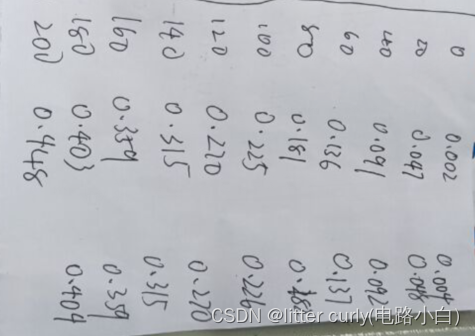 0 0.002
20 0.047 0.048
40 0.091 0.092
60 0.136 0.137
80 0.181
100 0.225 0.226
120 0.270 0.270
140 0.315 0.315
160 0.359 0.359
180 0.403 0.404
200 0.448
CSDN @litter curly(电路小白)